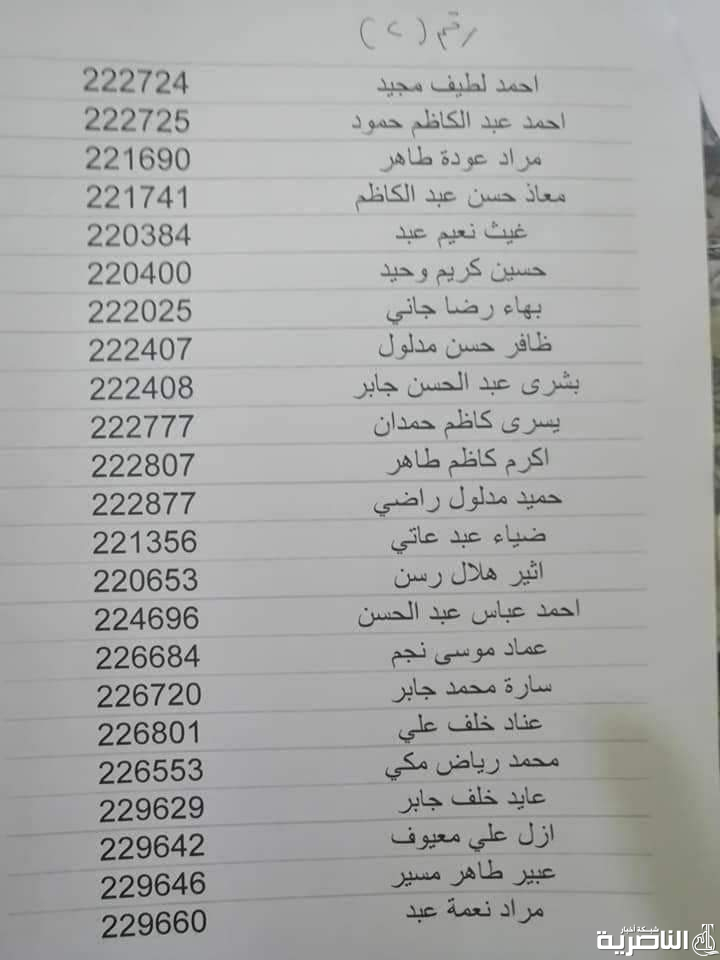 رقم (٢)
احمد لطيف مجيد 222724
احمد عبد الكاظم حمود 222725
مراد عودة طاهر 221690
معاذ حسن عبد الكاظم 221741
غيث نعيم عبد 220384
حسين كريم وحيد 220400
بهاء رضا جاني 222025
ظافر حسن مدلول 222407
بشرى عبد الحسن جابر 222408
يسرى كاظم حمدان 222777
اكرم كاظم طاهر 222807
حميد مدلول راضي 222877
ضياء عبد عاتي 221356
اثير هلال رسن 220653
احمد عباس عبد الحسن 224696
عماد موسى نجم 226684
سارة محمد جابر 226720
عناد خلف علي 226801
محمد رياض مكي 226553
عايد خلف جابر 229629
ازل علي معيوف 229642
عبير طاهر مسير 229646
مراد نعمة عبد 229660
شبكة أخبار
الناصرية